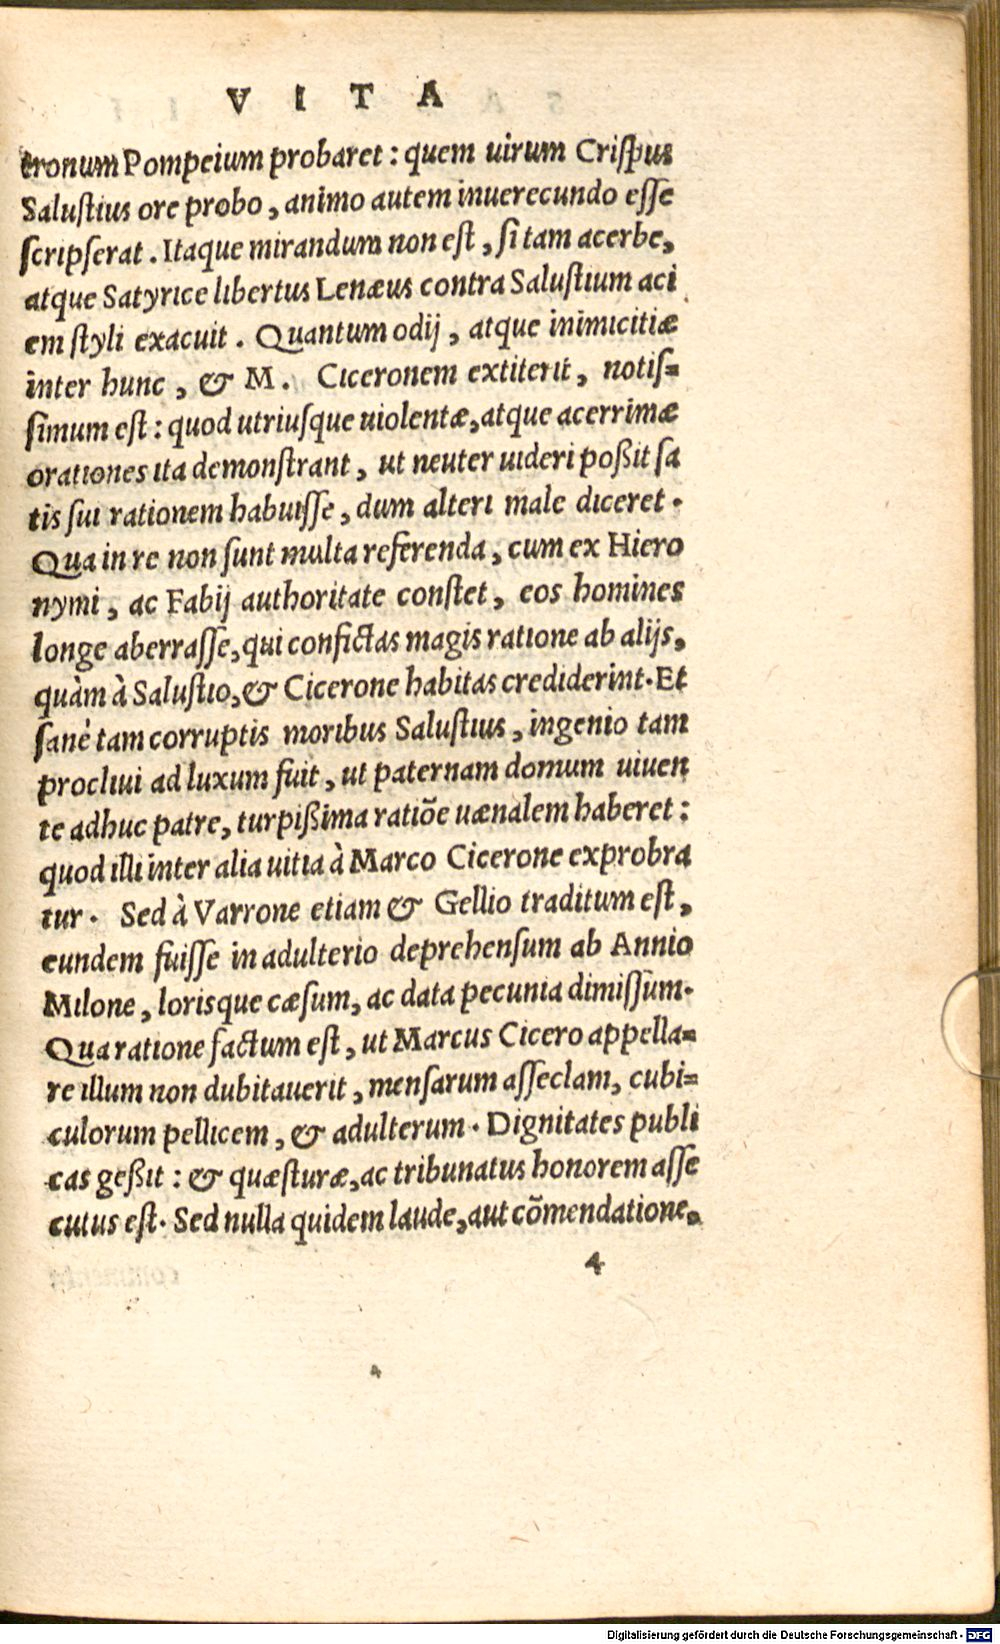 V I T A
tronum Pompeium probaret : quem uirum Criſpus
Saluſtius ore probo, animo autem inuerecundo eſſe
ſcripſerat. Itaque mirandum non eſt, ſi tam acerbe,
atque Satyrice libertus Lenæus contra Saluſtium aci
em ſtyli exacuit. Quantum odij, atque inimicitiæ
inter hunc, & M. Ciceronem extiterit, notiſ=
ſimum eſt : quod utriuſque uiolentæ, atque acerrimæ
orationes ita demonſtrant, ut neuter uideri poßit ſa
tis ſui rationem habuiſſe, dum alteri male diceret.
Qua in re non ſunt multa referenda, cum ex Hiero
nymi, ac Fabij authoritate conſtet, eos homines
longe aberraſſe, qui confictas magis ratione ab alijs,
quàm à Saluſtio, & Cicerone habitas crediderint. Et
ſanè tam corruptis moribus Saluſtius, ingenio tam
procliui ad luxum fuit, ut paternam domum uiuen
te adhuc patre, turpißima ratiõe uænalem haberet :
quod illi inter alia uitia à Marco Cicerone exprobra
tur. Sed à Varrone etiam & Gellio traditum eſt,
eundem fuiſſe in adulterio deprehenſum ab Annio
Milone, lorisque cæſum, ac data pecunia dimiſſum.
Qua ratione factum eſt, ut Marcus Cicero appella=
re illum non dubitauerit, menſarum aſſeclam, cubi=
culorum pellicem, & adulterum. Dignitates publi
cas geßit : & quæſturæ, ac tribunatus honorem aſſe
cutus eſt. Sed nulla quidem laude, aut cõmendatione.
4
Digitalisierung gefördert durch die Deutsche Forschungsgemeinschaft - DFG